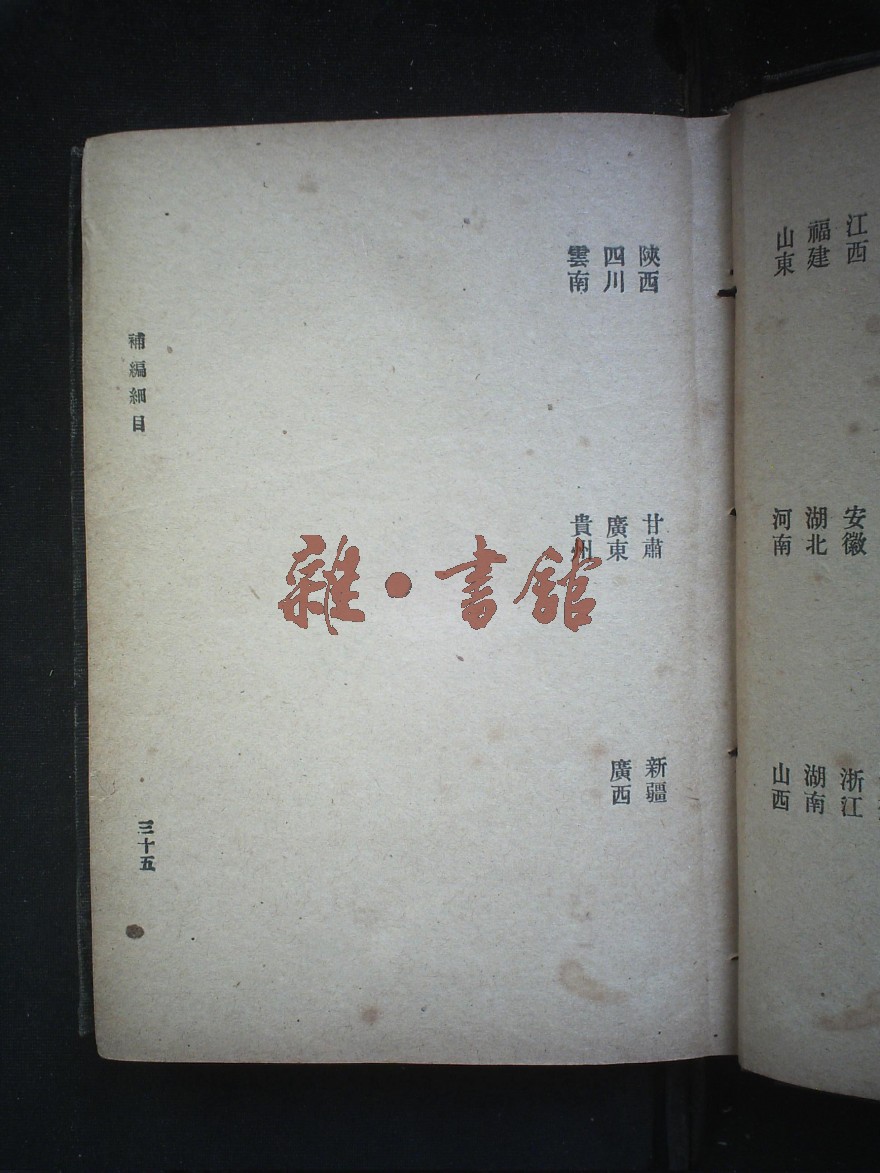 江西
安徽
浙江
福建
湖北
湖南
山東
河南
山西
陝西
甘肅
新疆
四川
廣東
廣西
雲南
貴州
補編細目
三十五
雜·書館